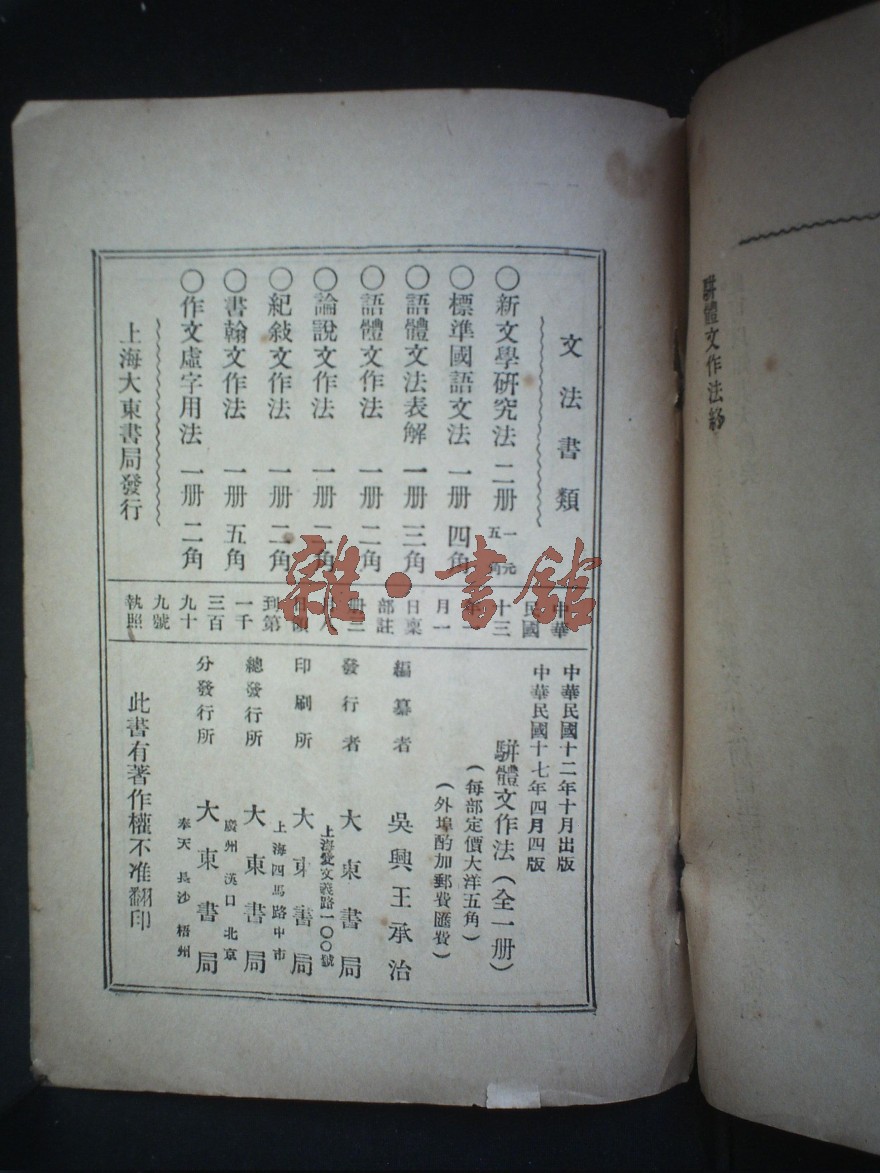 駢體文作法終
文法書類
○新文學研究法 二册 一元五角
○標準國語文法 一册 四角
○語體文法表解 一册 三角
○語體文作法 一册 二角
○論說文作法 一册 二角
○紀敍文作法 一册 二角
○書翰文作法 一册 五角
○作文虛字用法 一册 二角
上海大東書局發行
中華
民國
十三
月一
日稟
部註
册二
到第
一千
三百
九十
九號
執照
中華民國十二年十月出版
中華民國十七年四月四版
駢體文作法(全一册)
(每部定價大洋五角)
(外埠酌加郵費匯費)
編纂者 吳興王承治
發行者 大東書局
上海愛文義路一〇〇號
印刷所 大東書局
上海四馬路中市
總發行所 大東書局
廣州 漢口 北京
分發行所 大東書局
奉天 長沙 梧州
此書有著作權不准翻印
雜·書館